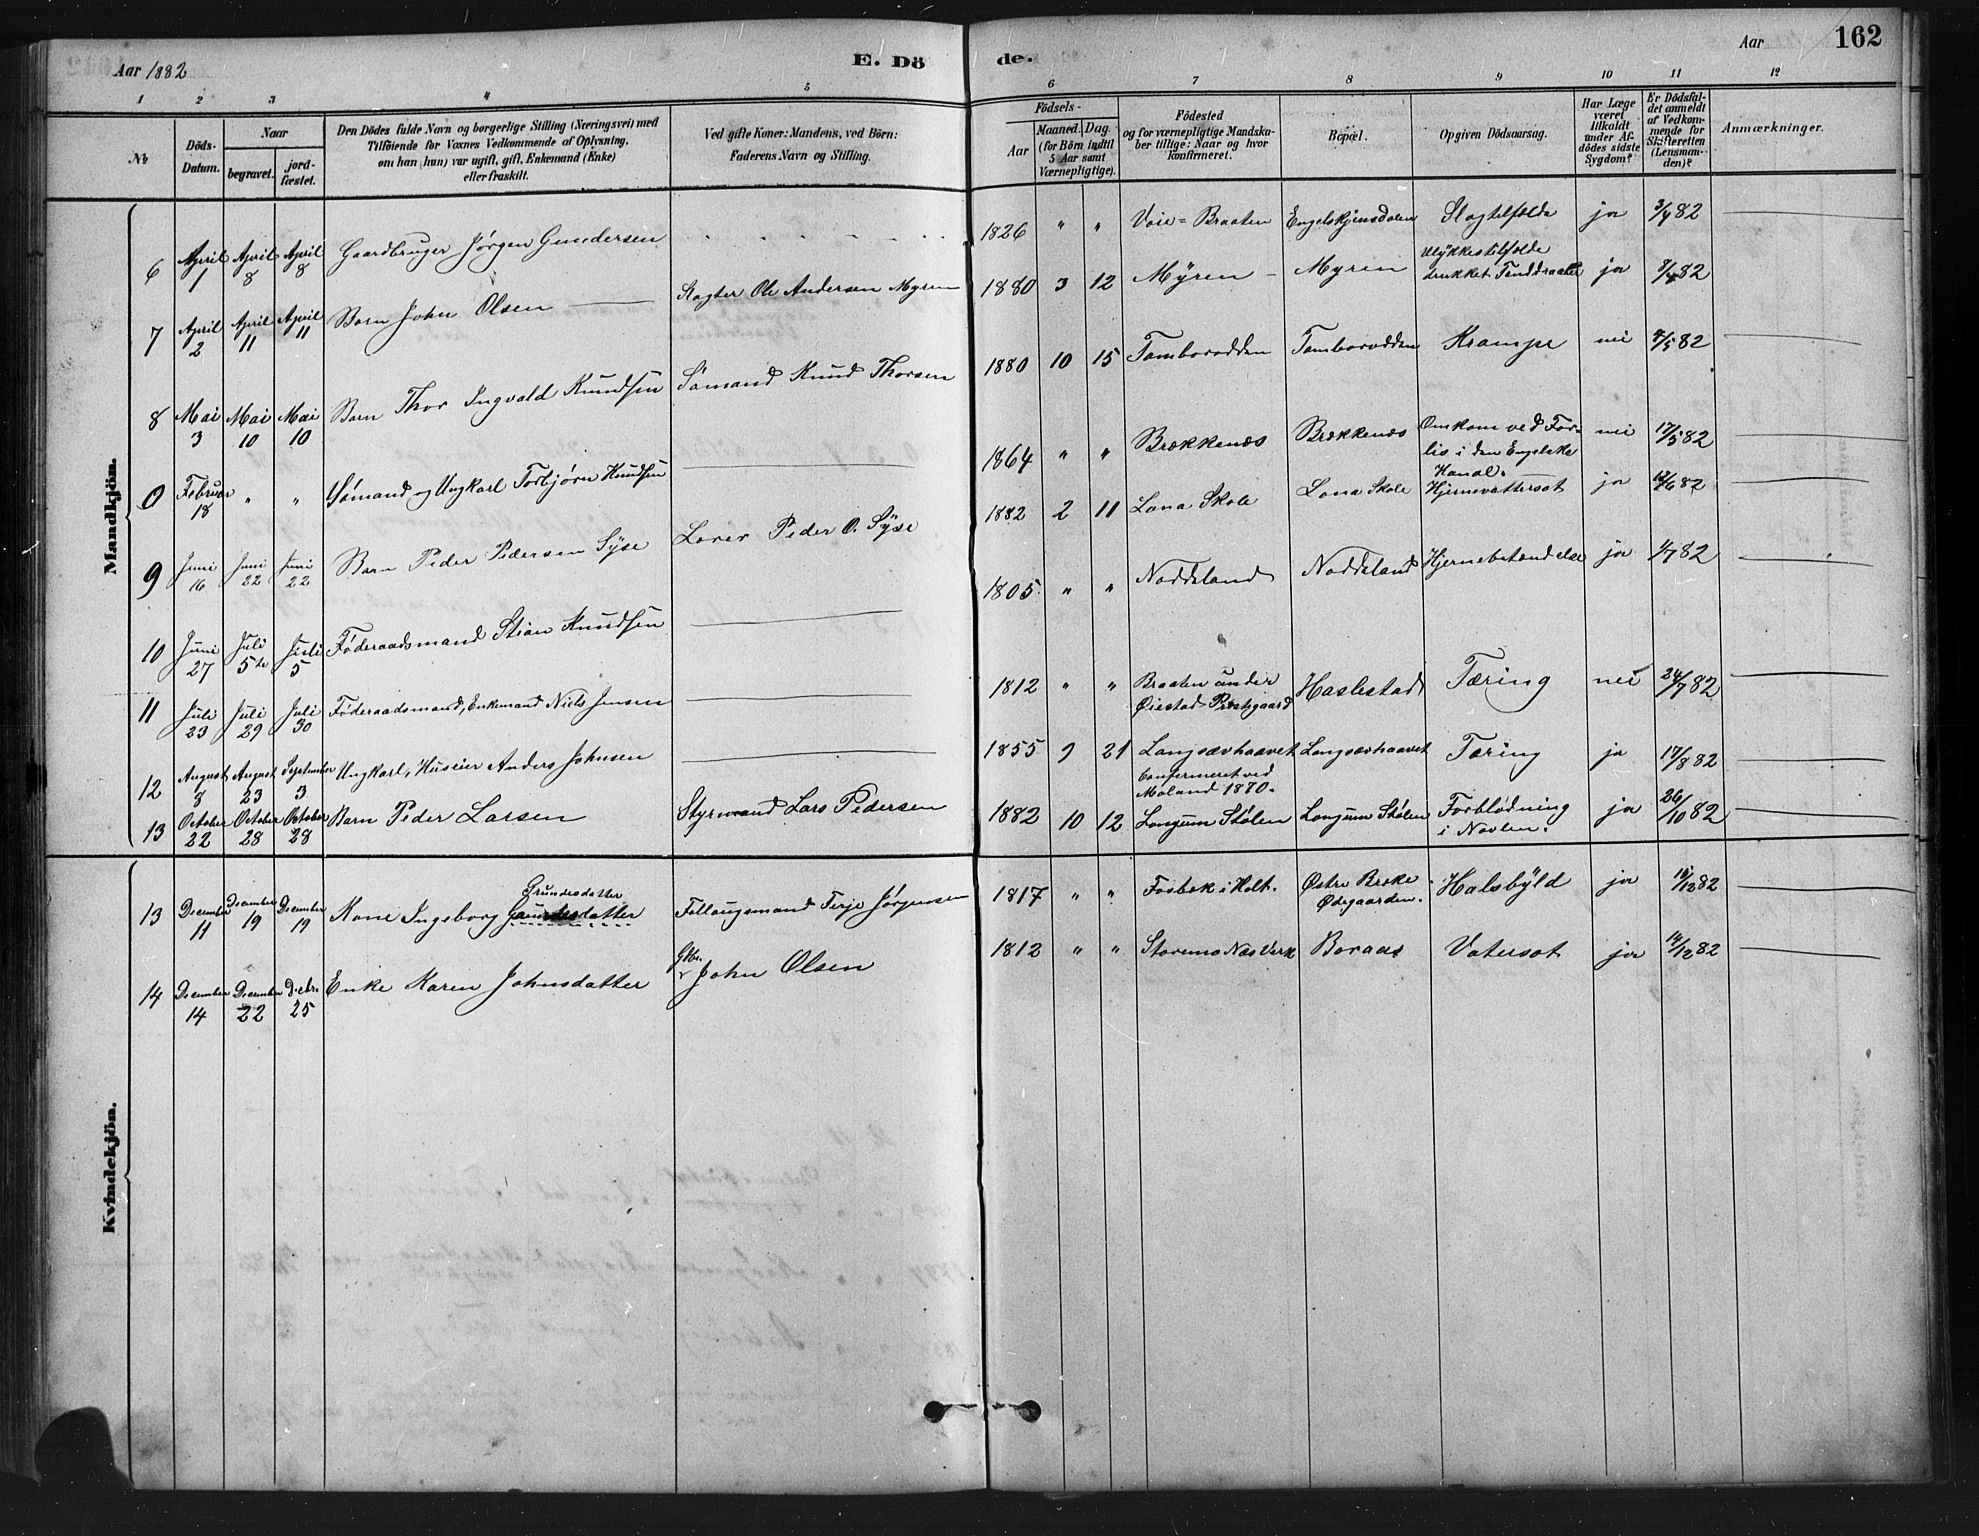 Aar 1882
E. Dö
de.
Aar
162
1 2 3 4 5 6 7 8 9 10 11 12
No
Döds-Datum.
Naar
begravet.
jord-fæstet.
Den Dödes fulde Navn og borgerlige Stilling (Næringsvei) med
Tilföiende for Voxnes Vedkommende af Oplysning,
om han (hun) var ugift, gift, Enkemand (Enke)
eller fraskilt.
Ved gifte Koner: Mandens, ved Börn:
Faderens Navn og Stilling.
Födsels-
Aar
Maaned. Dag.
(for Börn indtil
5 Aar samt
Værnepligtige).
Födested
og for værnepligtige Mandska-
ber tillige: Naar og hvor
konfirmeret.
Bopæl.
Opgiven Dödsaarsag.
Har Læge
været
tilkaldt
under Af-
dödes sidste
Sygdom?
Er Dödsfal-
det anmeldt
af Vedkom-
mende for
Skifteretten
(Lensman-
den)?
Anmærkninger.
Mandkjön.
6 April 1 April 8 April 8 Gaardbruger Jørgen Gundersen 1826 " " Voie-Braaten Engelskjønsdalen Slagtilfælde ja 3/4 82
7 April 2 April 11 April 11 Barn John Olsen Slagter Ole Andersen Myren 1880 3 12 Myren Myren Ulykkestilfælde drukket Tinddraaber ja 8/4 82
8 Mai 3 Mai 10 Mai 10 Barn Thor Ingvald Knudsen Sømand Knud Thorsen 1880 10 15 Tamborodden Tamborodden Krampe nei 7/5 82
0 Februar 18 " " Sømand og Ungkarl Torbjørn Knudsen 1864 " " Brækkenæs Brækkenæs Omkom ved For-
lis i den Engelske
Kanal. nei 17/5 82
9 Juni 16 Juni 22 Juni 22 Barn Peder Pedersen Syse Lærer Peder O. Syse 1882 2 11 Løna Skole Løna Skole Hjernevattersot ja 82
10 Juni 27 Juli 5te Juli 5 Føderaadsmand Stian Knudsen 1805 " " Nødteland Nødteland Hjernebetændelse ja 1/7 82
11 Juli 23 Juli 29 Juli 30 Føderaadsmand, Enkemand Niels Jensen 1812 " " Braaten under
Øiestad Præstgaard Haslestad Tæring nei 24/7 82
12 August 8 August 23 September 3 Ungkarl, Huseier Anders Johnsen 1855 9 21 Langsævhaavet
Confirmeret ved
Moland 1870. Langsævhaavet Tæring ja 17/8 82
13 October 22 October 28 October 28 Barn Peder Larsen Styrmand Lars Pedersen 1882 10 12 Longum Støen Longum Støen Forblødning
i Navlen. ja 26/10 82
Kvindekjön.
13 December 11 December 19 December 19 Kone Ingeborg Grundesdatter Follaugsmand Terje Jørgensen 1817 " " Fosbek i Holt. Østre Broke
Ødegaarden. Halsbyld ja 18/12 82
14 December 14 December 22 Decbr. 25 Enke Karen Johnsdatter Gbr. John Olsen 1812 " " Storemo Næs Verk Boraas Vatersot ja 14/12 82